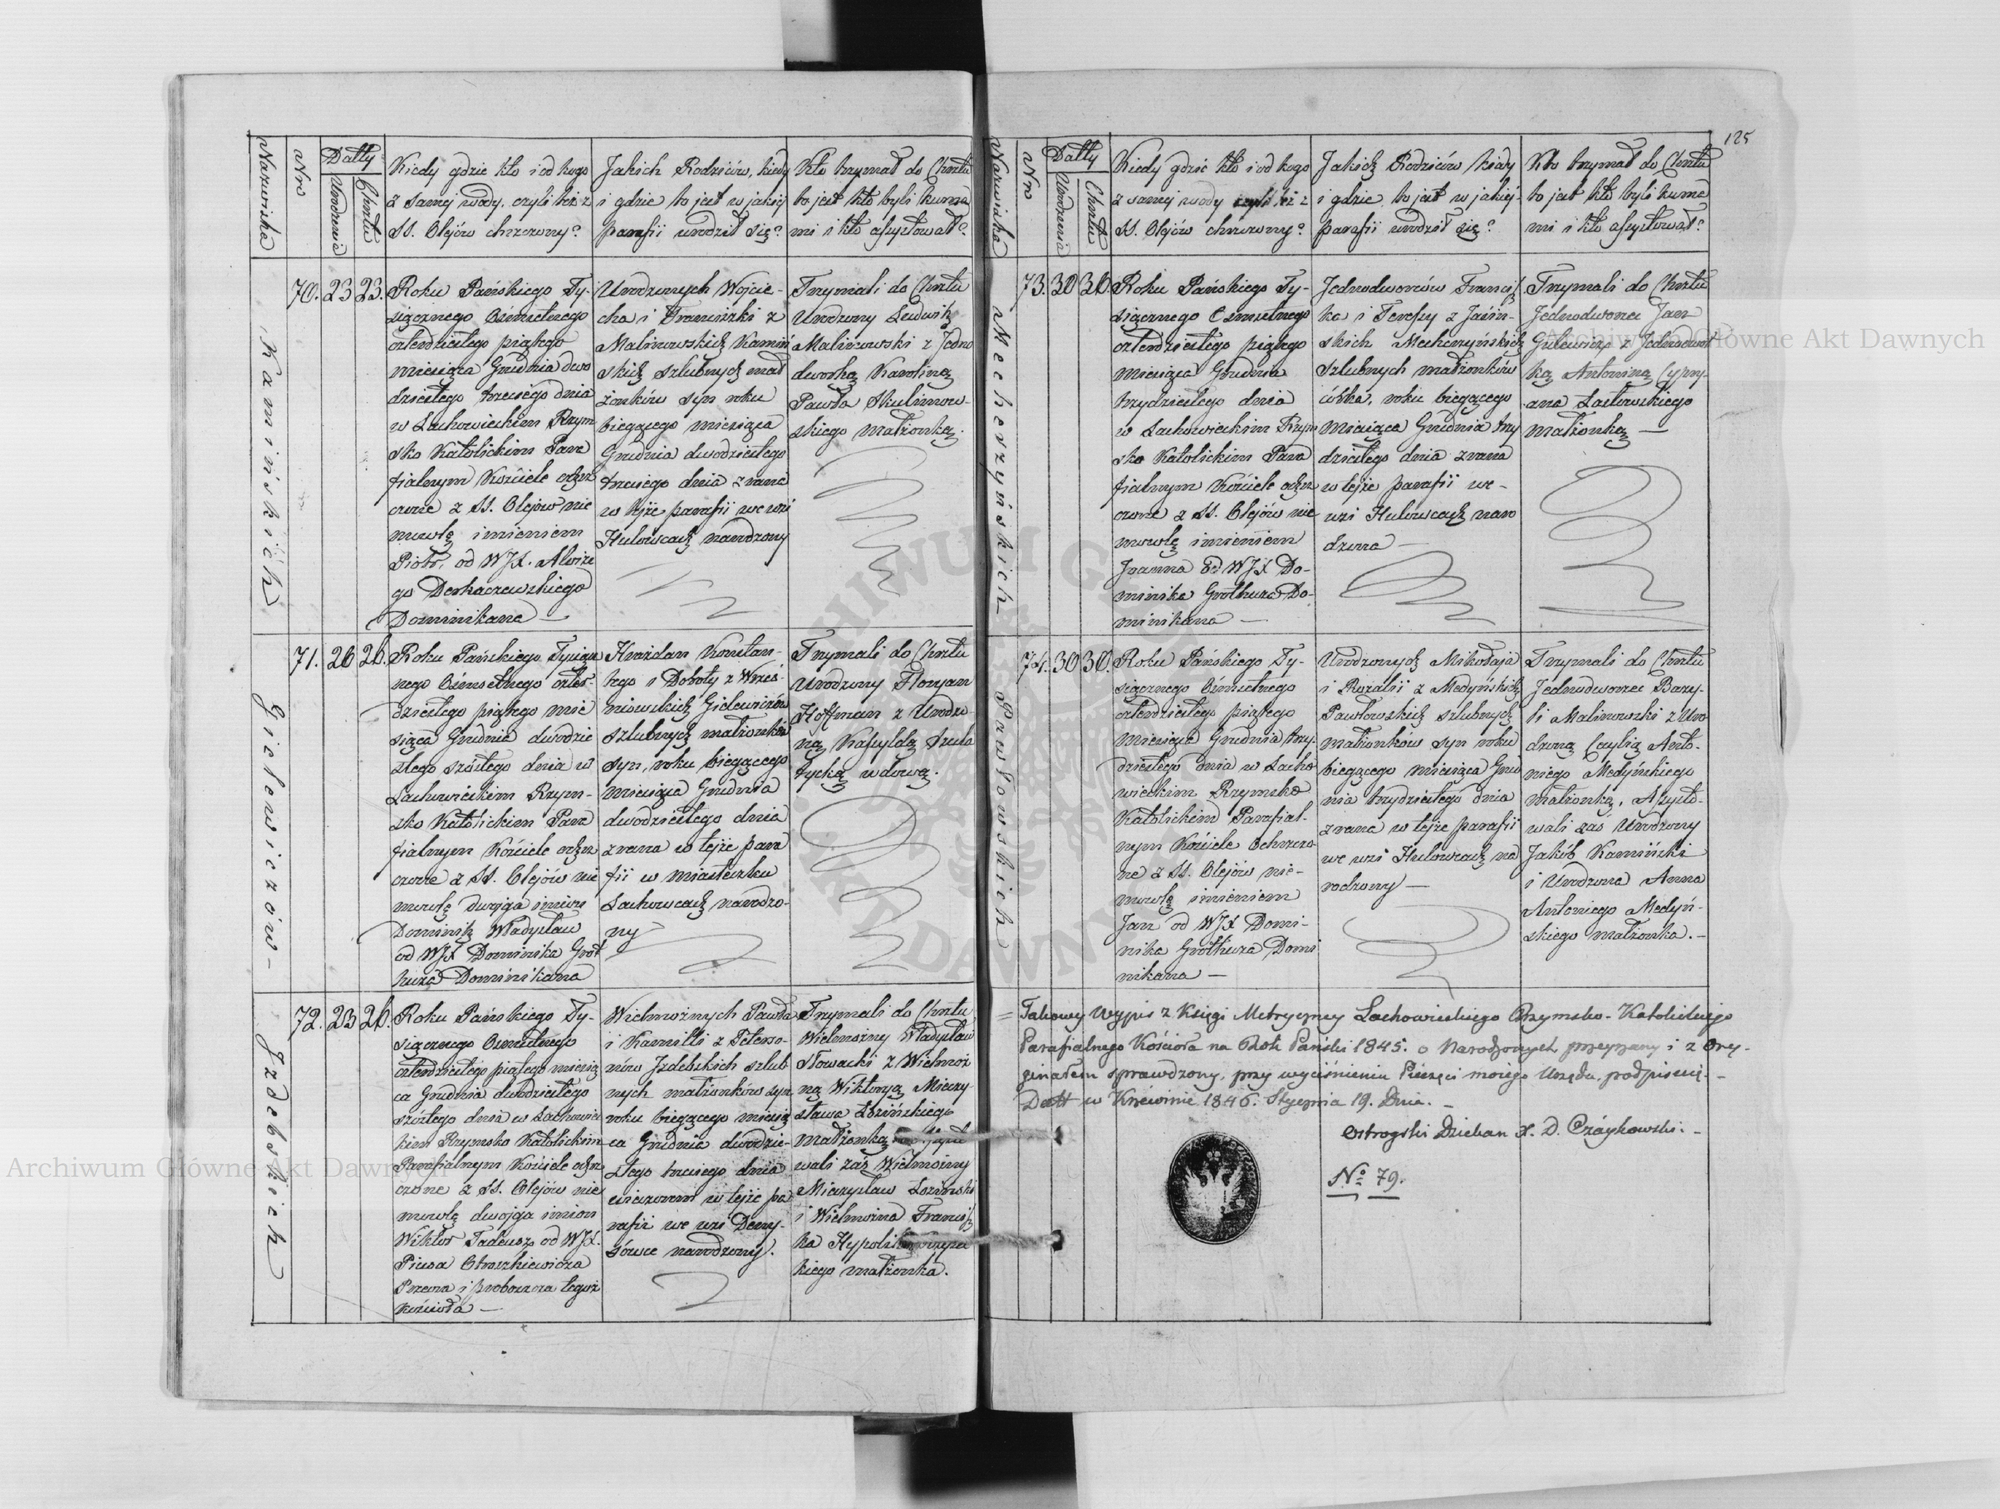 Nazwiska
Nro
Datty
Urodzenia
Chrztu
Kiedy gdzie kto i od kogo
z samej wody, czyli też z
SS. Olejów chrzczony?
Jakich Rodziców, kiedy
i gdzie to jest w jakiej
parafii urodził się?
Kto trzymał do Chrztu
to jest kto byli kuma
mi i kto asystował?
Kamińskich
70. 23 23.
Roku Pańskiego Ty-
siącznego Osmsetnego
czterdziestego piątego
miesiąca Grudnia dwu
dziestego trzeciego dnia
w Lachowieckim Rzym
sko Katolickim Para
fialnym Kościele ochrz
czone z SS. Olejów nie
mowlę imieniem
Piotr, od WJX. Alojze
go Derkaczewskiego
Dominikana —
Urodzonych Wojcie-
cha i Franciszki z
Malinowskich Kamiń
skich szlubnych mał
żonków syn roku
biegącego miesiąca
Grudnia dwudziestego
trzeciego dnia zrana
w tejże parafii we wsi
Hulowcach narodzony
Trzymali do Chrztu
Urodzony Ludwik
Malinowski z Jedno
dworką Karoliną
Pawła Skulimow-
skiego małżonką.
Gielewiczów -
71. 26 26.
Roku Pańskiego Tysiącz
nego Osmsetnego czter-
dziestego piątego mie
siąca Grudnia dwódzie
stego szóstego dnia w
Lachowieckim Rzym-
sko Katolickim Para
fialnym Kościele ochrz
czone z SS. Olejów nie
mowlę dwojga imion
Dominik Władysław
od WJX Dominika Grot
huza Dominikana
Konstan-
tego i Doroty z Wrześ-
niowskich Gielewiczów
szlubnych małżonków
syn, roku biegącego
miesiąca Grudnia
dwodziestego dnia
zrana w tejże para
fii w miasteczku
Lachowcach narodzo-
ny
Trzymali do Chrztu
Urodzony Floryan
Hoffman z Urodzo
ną
wdową.
Jzdebskich
72. 23 26.
Roku Pańskiego Ty-
siącznego Osmsetnego
czterdziestego piątego miesią
ca Grudnia dwudziestego
szóstego dnia w Lachowiec
kim Rzymsko Katolickim
Parafialnym Kościele ochrz
czone z SS. Olejów nie
mowlę dwojga imion
Wiktor Tadeusz od WJX.
Piusa Otroszkiewicza
Przeora i proboszcza tegoż
kościoła —
Wielmożnych Pawła
i Kamilli z Peterso-
nów Jzdebskich szlub
nych małżonków syn
roku biegącego miesią
ca Grudnia dwudzie-
stego trzeciego dnia
wieczorem w tejże pa
rafii we wsi Deny-
sówce narodzony.
Trzymali do Chrztu
Wielmożny Władysław
Słowacki z Wielmoż
ną Wiktoryą Mieczy
sława Łozińskiego
małżonką
wali zaś Wielmożny
Mieczysław Łoziński
i Wielmożna Francisz
ka Hypolita
kiego małżonka.
125
Nazwiska
Nro
Datty
Urodzenia
Chrztu
Kiedy gdzie kto i od kogo
z samej wody czyli też z
SS. Olejów chrzczony?
Jakich Rodziców, kiedy
i gdzie, to jest w jakiej-
parafii urodził się?
Kto trzymał do Chrztu
to jest kto byli kuma
mi i kto asystował?
Mecherzyńskich
73. 30 30.
Roku Pańskiego Ty-
siącznego Osmsetnego
czterdziestego piątego
miesiąca Grudnia
trzydziestego dnia
w Lachowieckim Rzym
sko Katolickim Para
fialnym Kościele ochrz
czone z SS. Olejów nie
mowlę imieniem
Joanna od WJX Do-
minika Grothuza Do-
minikana —
Jednodworców Francisz
ka i Teressy z Jasiń-
skich Mecherzyńskich
szlubnych małżonków
córka, roku biegącego
miesiąca Grudnia trzy
dziestego dnia zrana
w tejże parafii we-
wsi Hulowcach naro
dzona —
Trzymali do Chrztu
Jednodworzec Jan
Gilewicz z Jednodwor
ką Antoniną Cypry-
ana Lastowskiego
małżonką —
Pawłowskich
74. 30 30.
Roku Pańskiego Ty-
siącznego Osmsetnego
czterdziestego piątego
miesiąca Grudnia trzy-
dziestego dnia w Lacho-
wieckim Rzymsko
Katolickim Parafial-
nym Kościele ochrzczo-
ne z SS. Olejów nie-
mowlę imieniem
Jan od WJX Domi-
nika Grothuza Domi
nikana —
Urodzonych Mikołaja
i Rozalii z Medyńskich
Pawłowskich szlubnych
małżonków syn roku
biegącego miesiąca Gru
dnia trzydziestego dnia
zrana w tejże parafii
we wsi Hulowcach na
rodzony —
Trzymali do Chrztu
Jednodworzec Bazy-
li Malinowski z Uro
dzoną Cecylią Anto-
niego Medyńskiego
małżonką, Assysto-
wali zaś Urodzony
Jakób Kamiński
i Urodzona Anna
Antoniego Medyń-
skiego małżonka. —
Takowy Wypis z Księgi Metryczney Lachowieckiego Rzymsko-Katolickiego
Parafialnego Kościoła na Rok Pański 1845. o Narodzonych przeyzany i z Ory-
ginałem sprawdzony, przy wyciśnieniu Pieczęci moiego Urzędu, podpisuię. -
Datt w Krzewinie 1846. Stycznia 19. Dnia. -
Ostrogski Dziekan X. D. Czaykowski. -
No 79.
Archiwum Główne Akt Dawnych
Archiwum Główne Akt Dawnych
ARCHIWUM GŁÓWNE AKT DAWNYCH